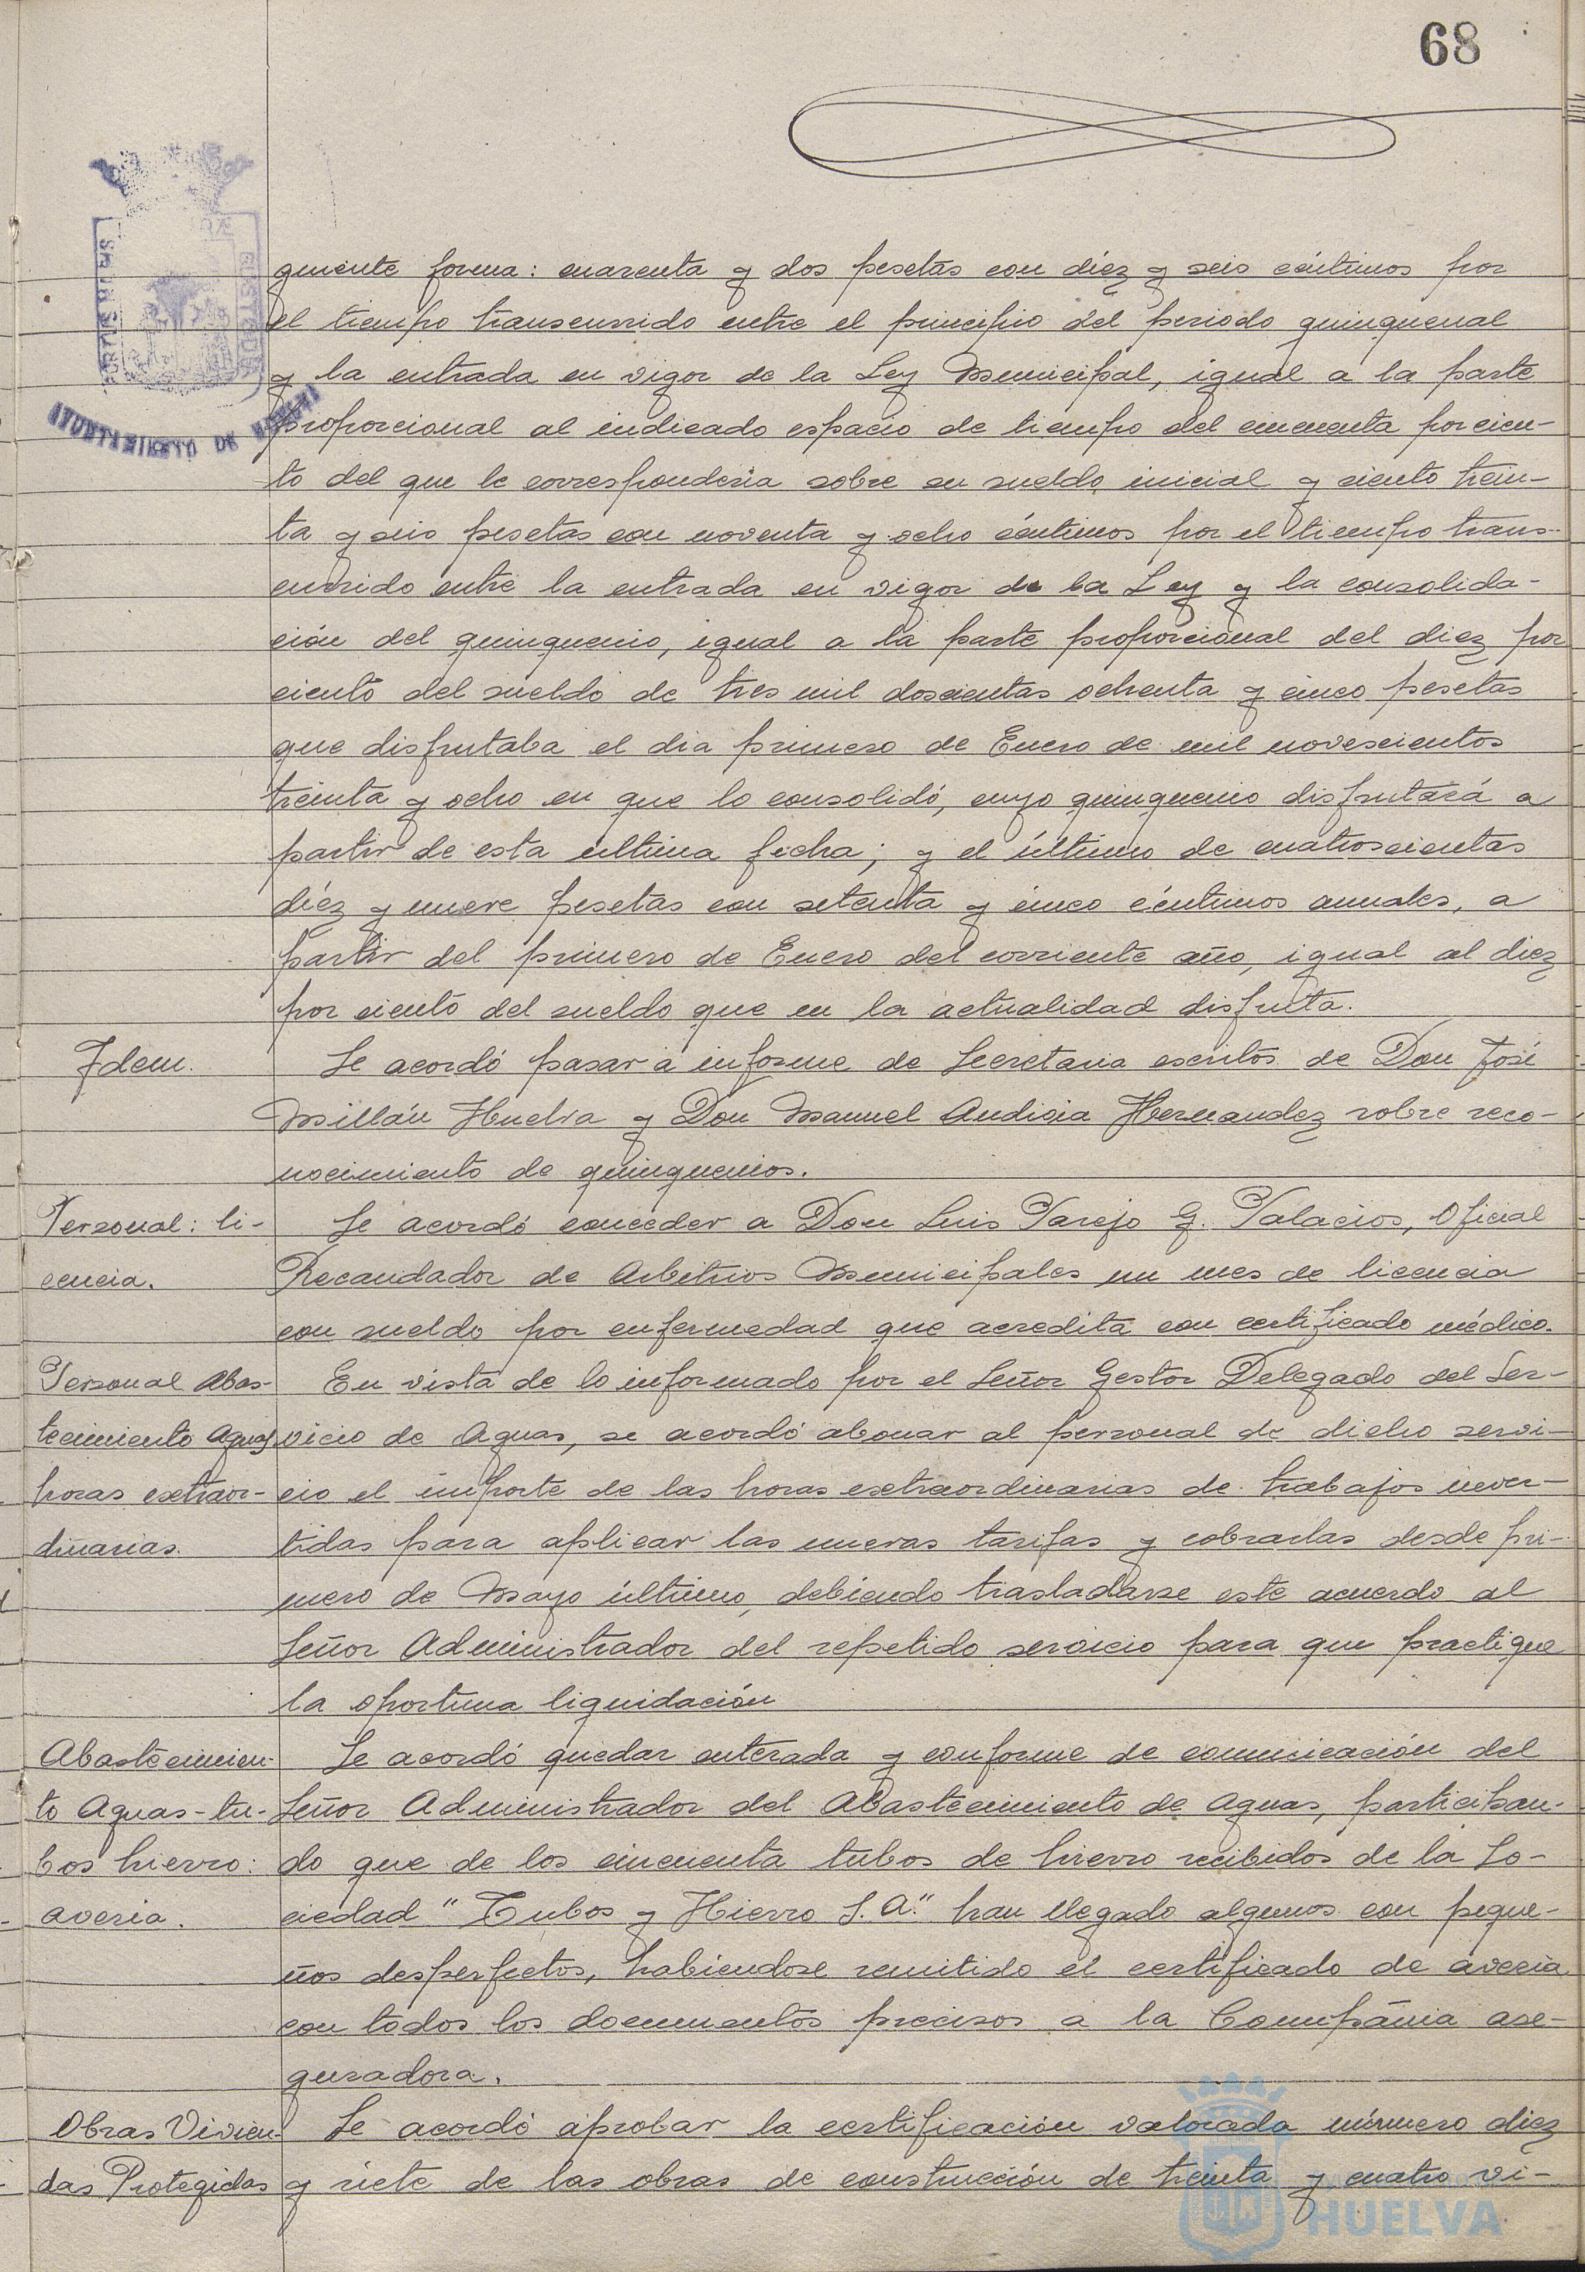 68
PORTUS MARIS ET TERRÆ CUSTODIA
AYUNTAMIENTO DE HUELVA
guiente forma: cuarenta y dos pesetas con diéz y seis céntimos por
el tiempo transcurrido entre el principio del periodo quinquenal
y la entrada en vigor de la Ley Municipal, igual a la parte
proporcional al indicado espacio de tiempo del cincuenta por cien-
to del que le correspondería sobre su sueldo inicial y ciento trein-
ta y seis pesetas con noventa y ocho céntimos por el tiempo trans-
currido entre la entrada en vigor de la Ley y la consolida-
ción del quinquenio, igual a la parte proporcional del diez por
ciento del sueldo de tres mil doscientas ochenta y cinco pesetas
que disfrutaba el dia primero de Enero de mil novescientos
treinta y ocho en que lo consolidó, cuyo quinquenio disfrutará a
partir de esta última fecha; y el último de cuatroscientas
diéz y nueve pesetas con setenta y cinco céntimos anuales, a
partir del primero de Enero del corriente año, igual al diez
por ciento del sueldo que en la actualidad disfruta.
Idem.
Se acordó pasar a informe de Secretaria escritos de Don José
Millán Huelva y Don Manuel Audicia Hernandez sobre reco-
nocimiento de quinquenios.
Personal: li-
cencia.
Se acordó conceder a Don Luis Parejo G. Palacios, Oficial
Recaudador de Arbitrios Municipales un mes de licencia
con sueldo por enfermedad que acredita con certificado médico.
Personal Abas-
tecimiento Aguas
horas extraor-
dinarias.
En vista de lo informado por el Señor Gestor Delegado del Ser-
vicio de Aguas, se acordó abonar al personal de dicho servi-
cio el importe de las horas extraordinarias de trabajos inver-
tidas para aplicar las nuevas tarifas y cobrarlas desde pri-
mero de Mayo último, debiendo trasladarse este acuerdo al
Señor Administrador del repetido servicio para que practique
la oportuna liquidación
Abastecimien-
to Aguas-tu-
bos hierro:
averia.
Se acordó quedar enterada y conforme de comunicación del
Señor Administrador del Abastecimiento de Aguas, participan-
do que de los cincuenta tubos de hierro recibidos de la So-
ciedad "Tubos y Hierro S.A." han llegado algunos con peque-
ños desperfectos, habiendose remitido el certificado de averia
con todos los documentos precisos a la Compañia ase-
guradora.
Obras Vivien-
das Protegidas
Se acordó aprobar la certificación valorada número diez
y siete de las obras de construcción de treinta y cuatro vi-
HUELVA